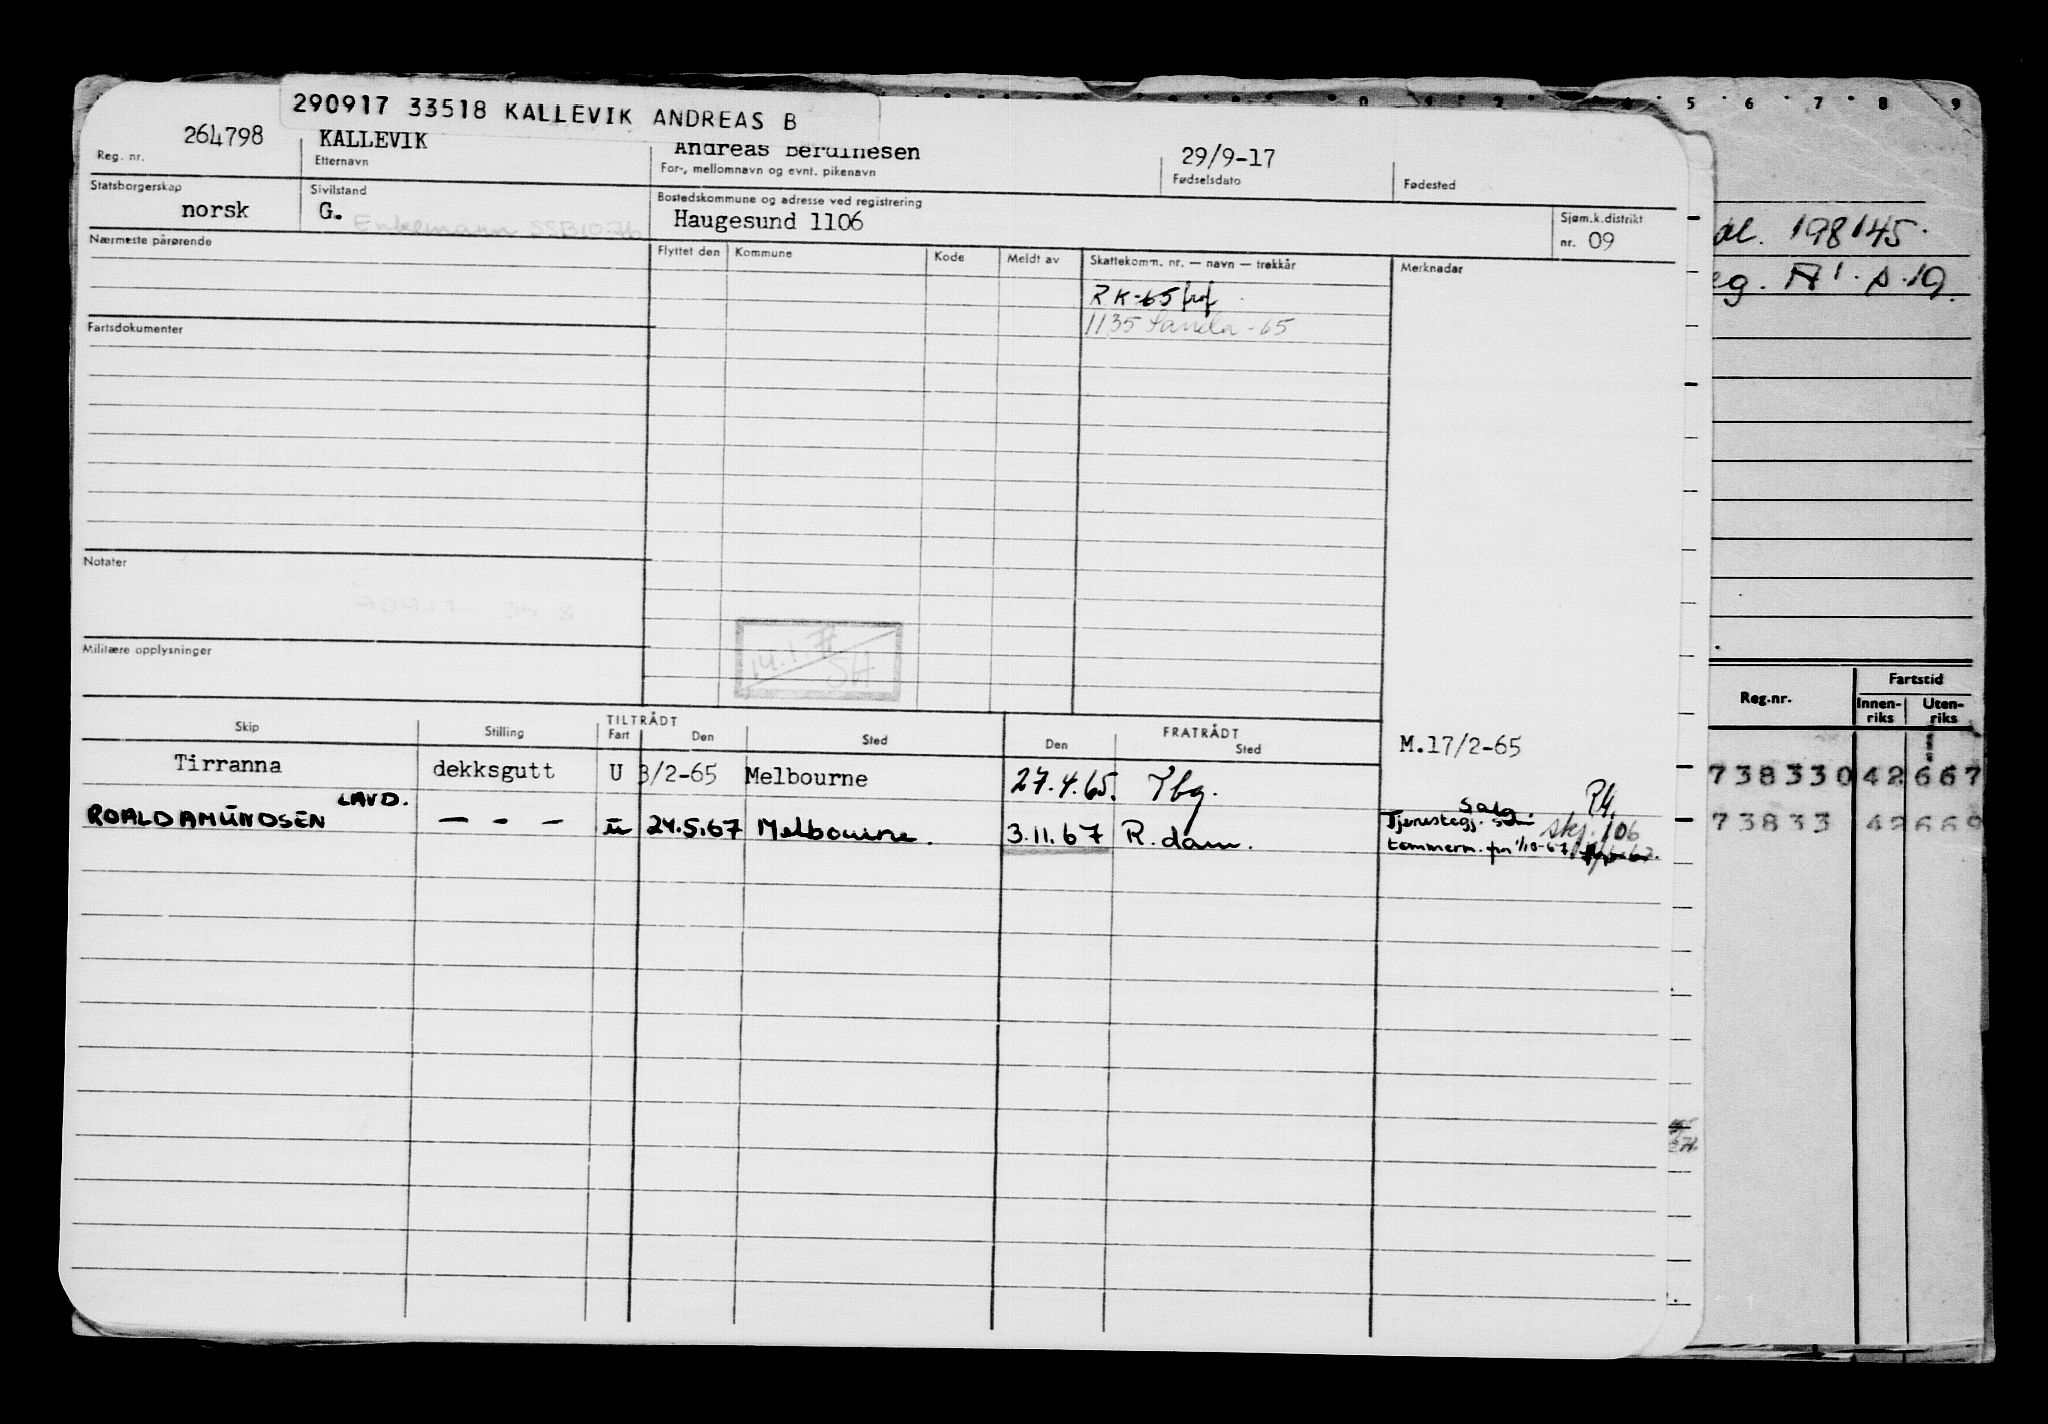 290917 33518 KALLEVIK ANDREAS B
5 6 7 8 9
264798 KALLEVIK Andreas 29/9-17
Reg. nr. Etternavn For-, mellomnavn og evnt. pikenavn Fødselsdato Fødested
Statsborgerskap Sivilstand Bostedskommune og adresse ved registrering Sjøm.k.distrikt
norsk G. Enkemann SSB10.76 Haugesund 1106 nr. 09
Nærmeste pårørende Flyttet den Kommune Kode Meldt av Skattekomm. nr. — navn — trekkår Merknader
RK-65
1135 Sauda -65
Fartsdokumenter
Notater
Militære opplysninger
14.1.
SH
Skip Stilling TILTRÅDT Fart Den Sted FRATRÅDT Den Sted
M.17/2-65
Tirranna dekksgutt U 3/2-65 Melbourne 27.4.65. Tbg.
LAVD.
ROALD AMUNDSEN — - — U 24.5.67 Melbourne. 3.11.67 R.dam.
Salg.
Tjenestegj. som skj. 106
tømmerm. fra 1/10-67
198145.
Reg.nr. Fartstid
Innen-riks Uten-riks
738330 42 667
73833 42 669